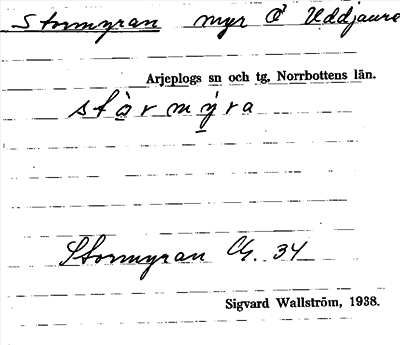 Stormyran myr Ö Uddjaure
Arjeplogs sn och tg, Norrbottens län.
stòrmýra
Stormyran 34
Sigvard Wallström, 1938.